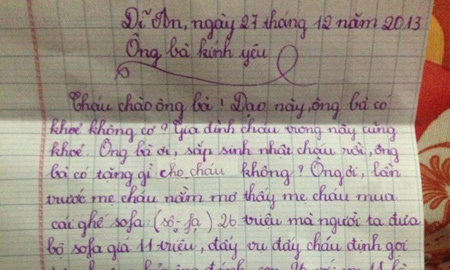 Dĩ An, ngày 27 tháng 12 năm 2013
Ông bà kính yêu
Cháu chào ông bà! Dạo này, ông bà có
khoẻ không cơ? Gia đình cháu trong này cũng
khoẻ. Ông bà ơi, sắp sinh nhật cháu rồi, ông
bà có tặng gì cho cháu không? Ông ơi, lần
trước mẹ cháu nằm mơ thấy mẹ cháu mua
cái ghế sofa (sô-fa) 26 triệu mà người ta đưa
bộ sofa giá 11 triệu, đấy vụ đấy cháu định gọi